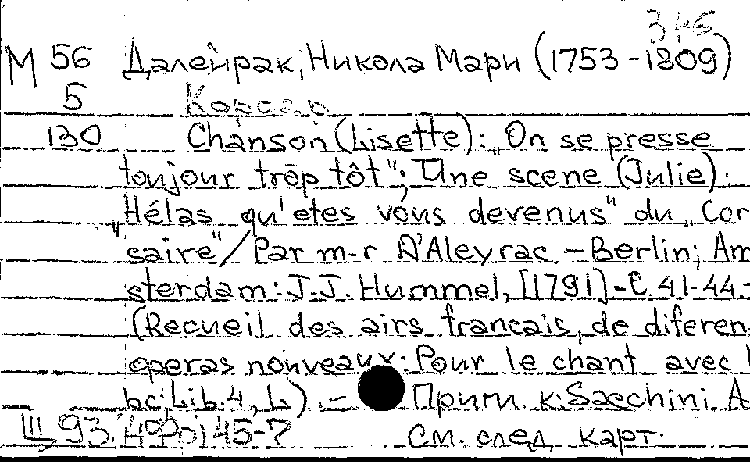 346
М 56 Далейрак, Никола Мари (1753-1809)
5 Корсар
130 Chanson (Lisette): „On se presse
toujour trop tôt"; Une scene (Julie):
„Hélas qu'etes vous devenus" du „Cor
saire"/Par m-r D'Aleyrac.-Berlin; Am
sterdam: J.J. Hummel, [1791]-С. 41-44.-
(Recueil des airs francais, de diferen
operas nouveaux: Pour le chant avec l
bc: Lib. 4, L) .- Прим. к: Sacchini. A
Ш 93. 145-7 См. след карт.